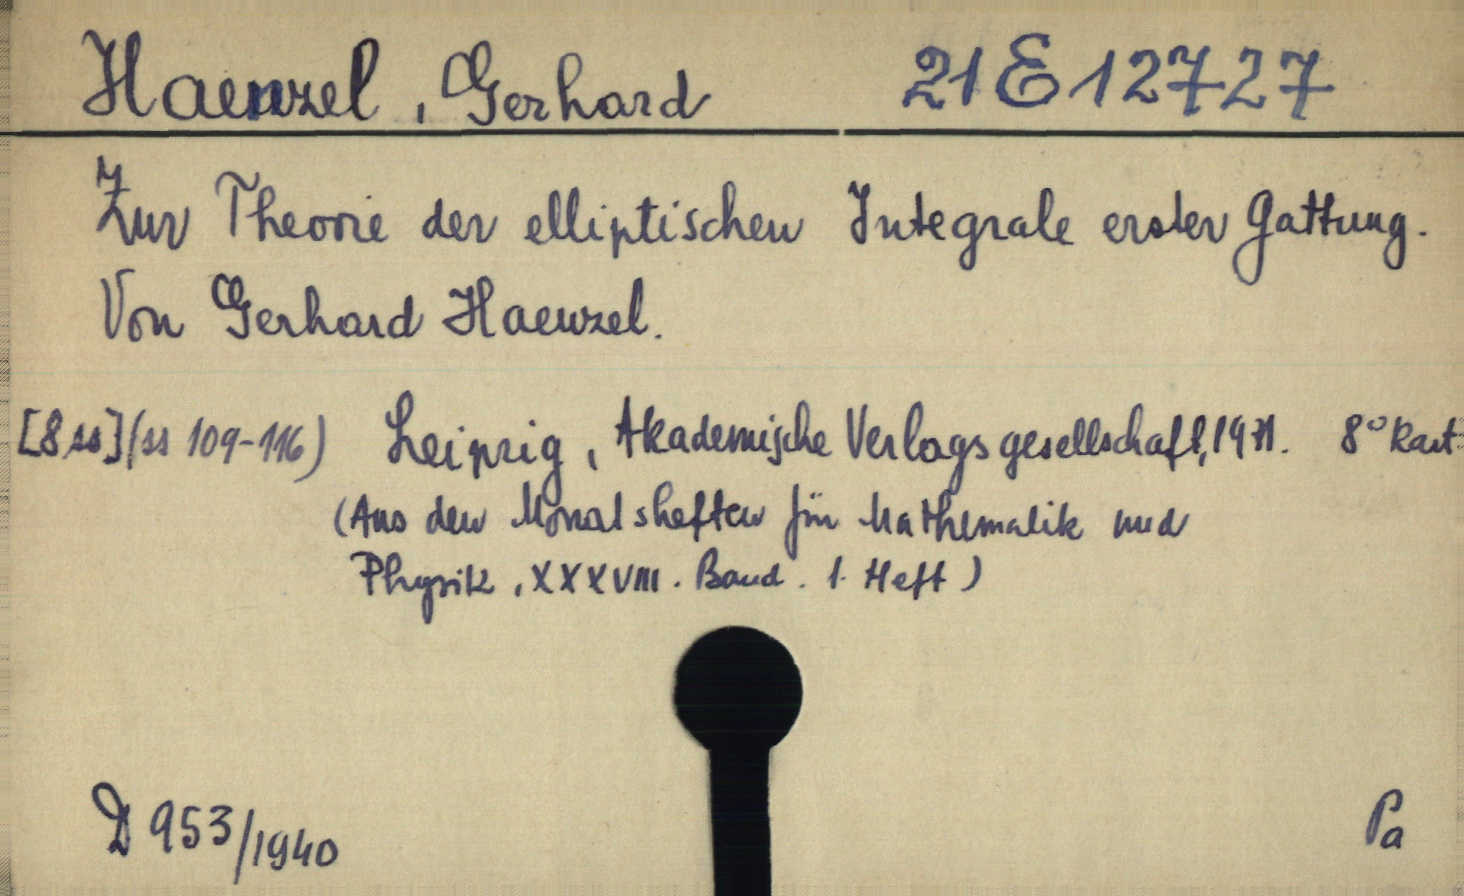 Haenzel, Gerhard 21 E 12727
Zur Theorie der elliptischen Integrale erster Gattung.
Von Gerhard Haenzel.
[8 ss] (ss 109-116) Leipzig, Akademische Verlagsgesellschaft, 1931. 8° Kart
(Aus den Monatsheften für Mathematik und
Physik, XXXVIII. Band. 1. Heft)
D 953/1940 Pa